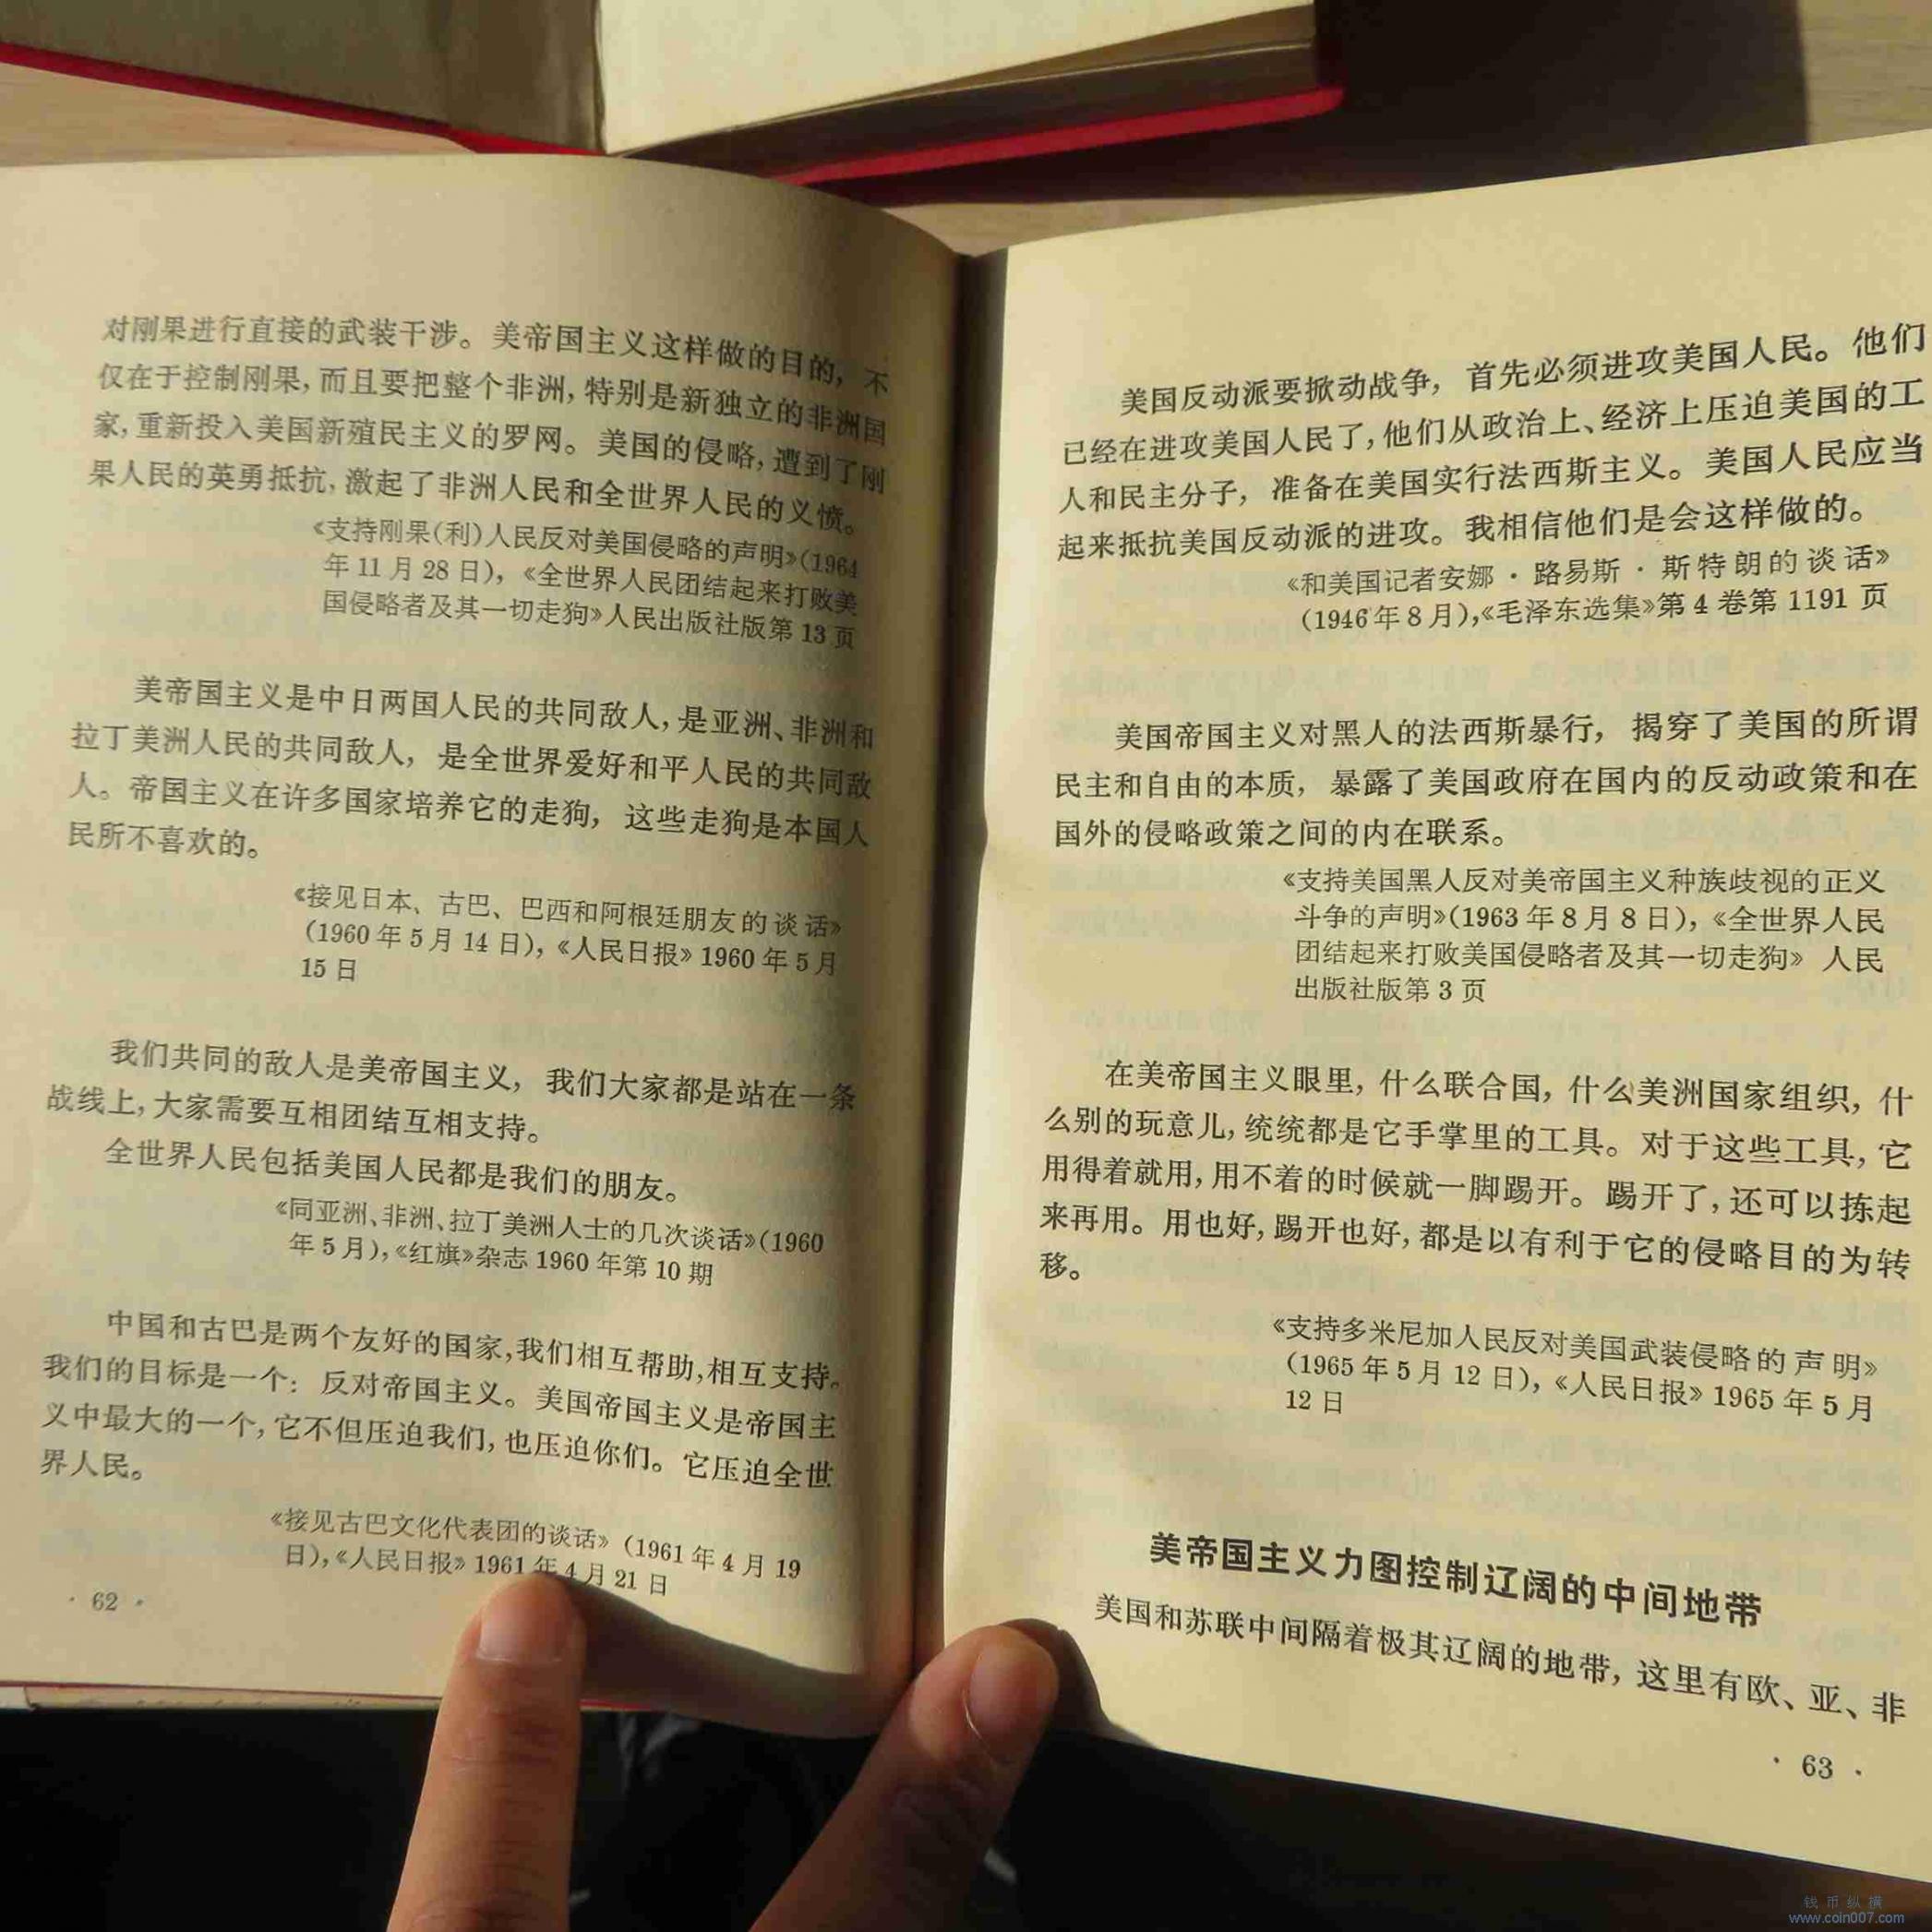 对刚果进行直接的武装干涉。美帝国主义这样做的目的，不
仅在于控制刚果，而且要把整个非洲，特别是新独立的非洲国
家，重新投入美国新殖民主义的罗网。美国的侵略，遭到了刚
果人民的英勇抵抗，激起了非洲人民和全世界人民的义愤。
《支持刚果(利)人民反对美国侵略的声明》(1964
年11月28日)，《全世界人民团结起来打败美
国侵略者及其一切走狗》人民出版社版第13页
美帝国主义是中日两国人民的共同敌人，是亚洲、非洲和
拉丁美洲人民的共同敌人，是全世界爱好和平人民的共同敌
人。帝国主义在许多国家培养它的走狗，这些走狗是本国人
民所不喜欢的。
《接见日本、古巴、巴西和阿根廷朋友的谈话》
(1960年5月14日)，《人民日报》1960年5月
15日
我们共同的敌人是美帝国主义，我们大家都是站在一条
战线上，大家需要互相团结互相支持。
全世界人民包括美国人民都是我们的朋友。
《同亚洲、非洲、拉丁美洲人士的几次谈话》(1960
年5月)，《红旗》杂志1960年第10期
中国和古巴是两个友好的国家，我们相互帮助，相互支持。
我们的目标是一个：反对帝国主义。美国帝国主义是帝国主
义中最大的一个，它不但压迫我们，也压迫你们。它压迫全世
界人民。
《接见古巴文化代表团的谈话》(1961年4月19
日)，《人民日报》1961年4月21日
· 62 ·
美国反动派要掀动战争，首先必须进攻美国人民。他们
已经在进攻美国人民了，他们从政治上、经济上压迫美国的工
人和民主分子，准备在美国实行法西斯主义。美国人民应当
起来抵抗美国反动派的进攻。我相信他们是会这样做的。
《和美国记者安娜·路易斯·斯特朗的谈话》
(1946年8月)，《毛泽东选集》第4卷第1191页
美国帝国主义对黑人的法西斯暴行，揭穿了美国的所谓
民主和自由的本质，暴露了美国政府在国内的反动政策和在
国外的侵略政策之间的内在联系。
《支持美国黑人反对美帝国主义种族歧视的正义
斗争的声明》(1963年8月8日)，《全世界人民
团结起来打败美国侵略者及其一切走狗》人民
出版社版第3页
在美帝国主义眼里，什么联合国，什么美洲国家组织，什
么别的玩意儿，统统都是它手掌里的工具。对于这些工具，它
用得着就用，用不着的时候就一脚踢开。踢开了，还可以拣起
来再用。用也好，踢开也好，都是以有利于它的侵略目的为转
移。
《支持多米尼加人民反对美国武装侵略的声明》
(1965年5月12日)，《人民日报》1965年5月
12日
美帝国主义力图控制辽阔的中间地带
美国和苏联中间隔着极其辽阔的地带，这里有欧、亚、非
· 63 ·
钱币纵横
www.coin007.com